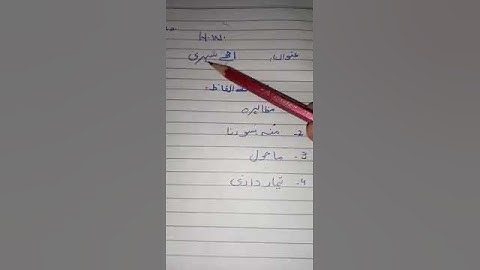 H.W.
عنوان: اچھے شہری
الفاظ:
مظاہرہ
2- منہ بسورنا
3- ماحول
4- تیمار داری